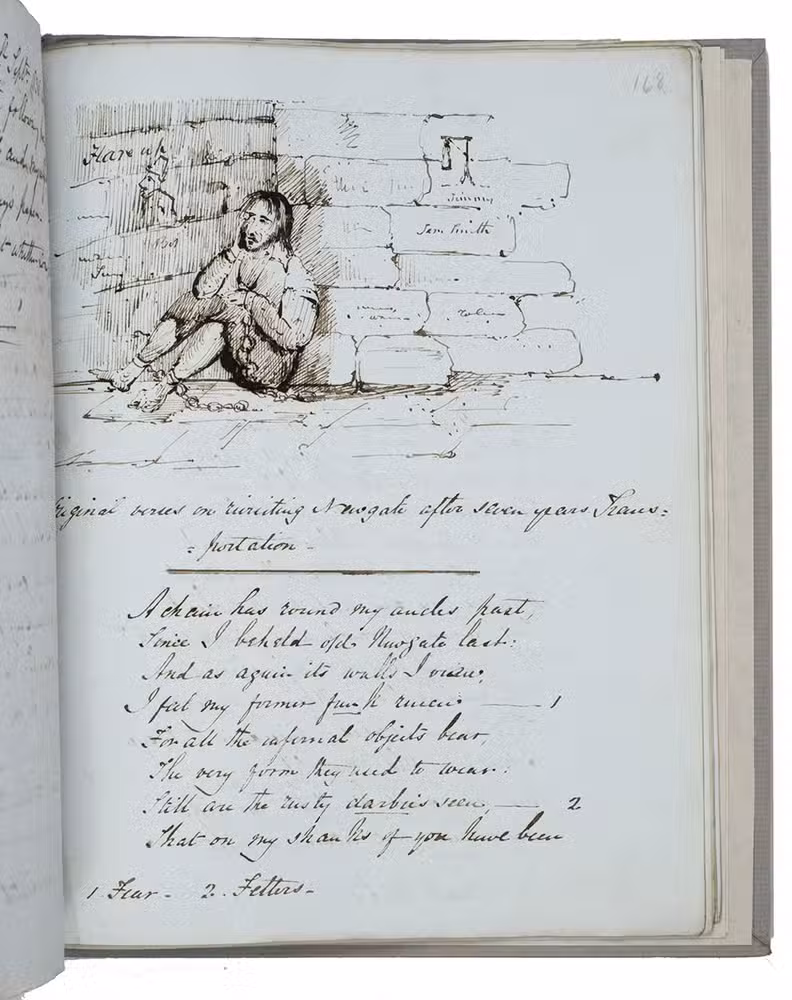 168
Flare up
Sam Smith
Original verses on revisiting Newgate after seven years Trans=
=portation -
A chain has round my ancles past,
Since I beheld old Newgate last:
And as again its walls I view,
I feel my former funk renew 1
For all the infernal objects bear,
The very form they used to wear:
Still are the rusty darbies seen, 2
That on my shanks of you have been
1 Fear - 2. Fetters -